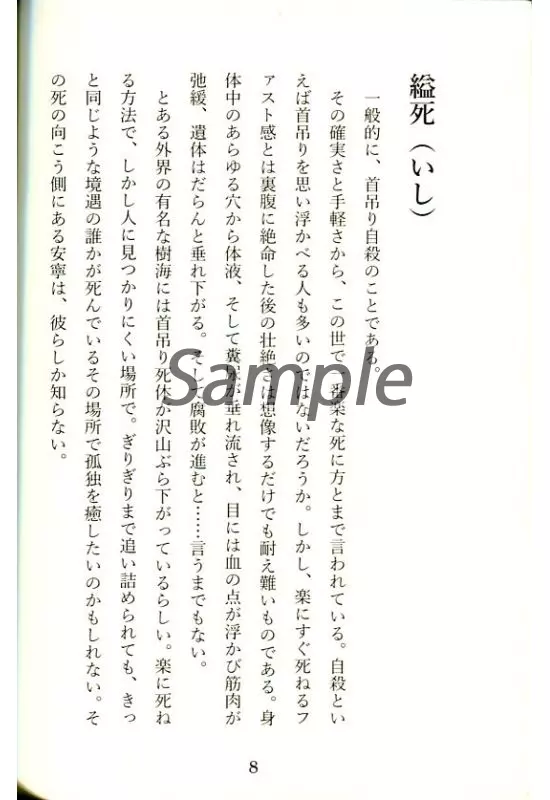 縊死（いし）
一般的に、首吊り自殺のことである。
その確実さと手軽さから、この世で一番楽な死に方とまで言われている。自殺とい
えば首吊りを思い浮かべる人も多いのではないだろうか。しかし、楽にすぐ死ねるフ
ァスト感とは裏腹に絶命した後の壮絶さは想像するだけでも耐え難いものである。身
体中のあらゆる穴から体液、そして糞尿が垂れ流され、目には血の点が浮かび筋肉が
弛緩、遺体はだらんと垂れ下がる。そして腐敗が進むと……言うまでもない。
とある外界の有名な樹海には首吊り死体が沢山ぶら下がっているらしい。楽に死ね
る方法で、しかし人に見つかりにくい場所で。ぎりぎりまで追い詰められても、きっ
と同じような境遇の誰かが死んでいるその場所で孤独を癒したいのかもしれない。そ
の死の向こう側にある安寧は、彼らしか知らない。
Sample
8